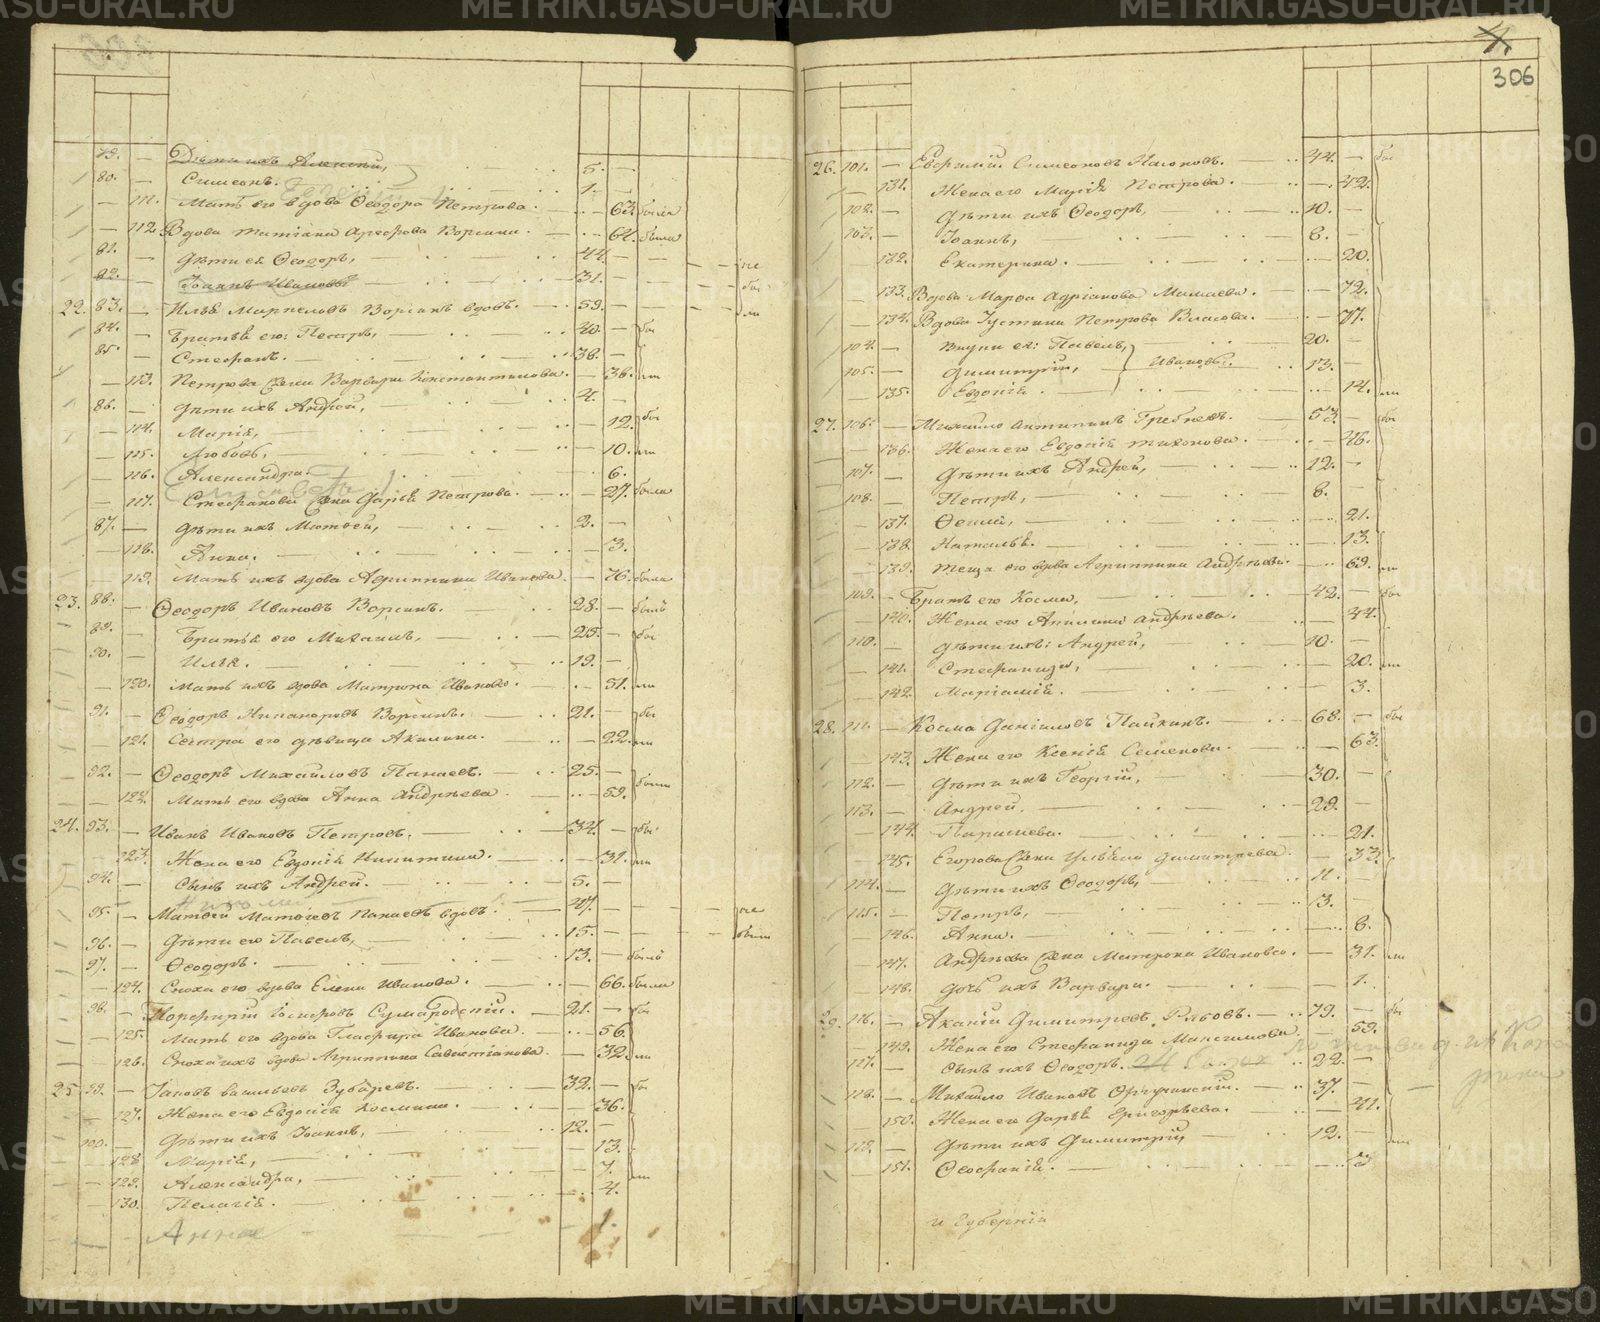 METRIKI.GASU-URAL.RU
306
79. — Дѣти ихъ Алексѣй, 5. —
80. — Симеонъ. 1. —
— 111. Мать его вдова Ѳеодора Петрова. — 63. была
— 112. Вдова Татіана Арефова Ворсина. — 64. была
81. — Дѣти ея Ѳеодоръ, 44. — не
82. — Іоаннъ Ивановы 31. — бы
22. 83. — Илья Марпеловъ Ворсинъ вдовъ. 59. — ли
84. — Братья его: Петръ, 40. — бы
85. — Стефанъ. 38. —
— 113. Петрова жена Варвара Константинова. — 36. ли
86. — Дѣти ихъ Андрей, 4. —
— 114. Марія, — 12. бы
— 115. Любовь, — 10. ли
— 116. Александра. — 6.
— 117. Стефанова жена Дарья Петрова. — 27. была
87. — Дѣти ихъ Матѳей, 2. —
— 118. Анна. — 3.
— 119. Мать ихъ вдова Агриппина Иванова. — 76. была
23. 88. — Ѳеодоръ Ивановъ Ворсинъ. 28. — былъ
89. — Братья его Михаилъ, 25. — бы
90. — Илья. 19. —
— 120. Мать ихъ вдова Матрона Иванова. — 51. ли
91. — Ѳеодоръ Никаноровъ Ворсинъ. 21. — бы
— 121. Сестра его дѣвица Акилина. — 22. ли
92. — Ѳеодоръ Михайловъ Панаевъ. 25. —
— 122. Мать его вдова Анна Андрѣева — 59. были
24. 93. — Иванъ Ивановъ Петровъ. 34. — бы
123. Жена его Евдокія Никитина. — 31. ли
94. — Сынъ ихъ Андрей. 5. —
95. — Матѳей Матѳеевъ Панаевъ вдовъ. 47. — не
96. — Дѣти его Павелъ, 15. — были
97. — Ѳеодоръ. 13. — былъ
— 124. Сноха его вдова Елена Иванова. — 66. была
98. — Порфирій 21. — бы
— 125. Мать его вдова Глафира Иванова. — 56.
— 126. Сноха ихъ вдова Агриппина — 32. ли
25. 99. — Іаковъ Васильевъ Зубаревъ. 32. — бы
— 127. Жена его Евдокія Космина. — 36.
100. — Дѣти ихъ Іоаннъ, 12. —
— 128. Марія, — 13.
— 129. Александра, — 7. ли
— 130. Пелагія. — 4.
Анна — 1.
26. 101. — Симеоновъ 44. — бы
— 131. Жена его Марія Петрова. — 42.
102. — Дѣти ихъ Ѳеодоръ, 10. —
103. — Іоаннъ, 6. —
— 132. Екатерина. — 20.
— 133. Вдова Марѳа Адріанова Мамаева. — 72.
— 134. Вдова Іустина Петрова Власова. — 77.
104. — Внуки ея: Павелъ, 20. —
105. — Димитрій, Ивановы. 13. —
— 135. Евдокія — 14. ли
27. 106. — Михайло Антипинъ Гребневъ. 53. — бы
— 136. Жена его Евдокія Тихонова. — 46.
107. — Дѣти ихъ Андрей, 12. —
108. — Петръ, 8. —
— 137. — 21.
— 138. Наталья. — 13.
— 139. Теща его вдова Агриппина Андрѣева. — 69. ли
109. — Братъ его Косма, 42. — бы
— 140. Жена его Акилина Андрѣева. — 44.
110. — Дѣти ихъ: Андрей, 10. —
— 141. Стефанида, — 20. ли
— 142. Маріамія. — 3.
28. 111. — Косма Даніиловъ Пайкинъ. 68. — бы
— 143. Жена его Ксенія Семенова. — 63.
112. — Дѣти ихъ Георгій, 30. —
113. — Андрей. 29. —
— 144. Параскева. — 21.
— 145. Егорова жена Ульяна Димитрева. — 33.
114. — Дѣти ихъ Ѳеодоръ, 11. —
115. — Петръ, 3. —
— 146. Анна. — 8.
— 147. Андрѣева жена Матрона Иванова. — 31. ли
— 148. Дочь ихъ Варвара. — 1.
29. 116. — Акакій Димитревъ Рябовъ. 79. — бы
— 149. Жена его Стефанида Максимова. — 59.
117. — Сынъ ихъ Ѳеодоръ. 22. —
118. — Михайло Ивановъ 37. —
— 150. Жена его Дарья Григорьева. — 41.
119. — Дѣти ихъ Димитрій, 12. — ли
— 151. Ѳеофанія. — 3
и Губерніи